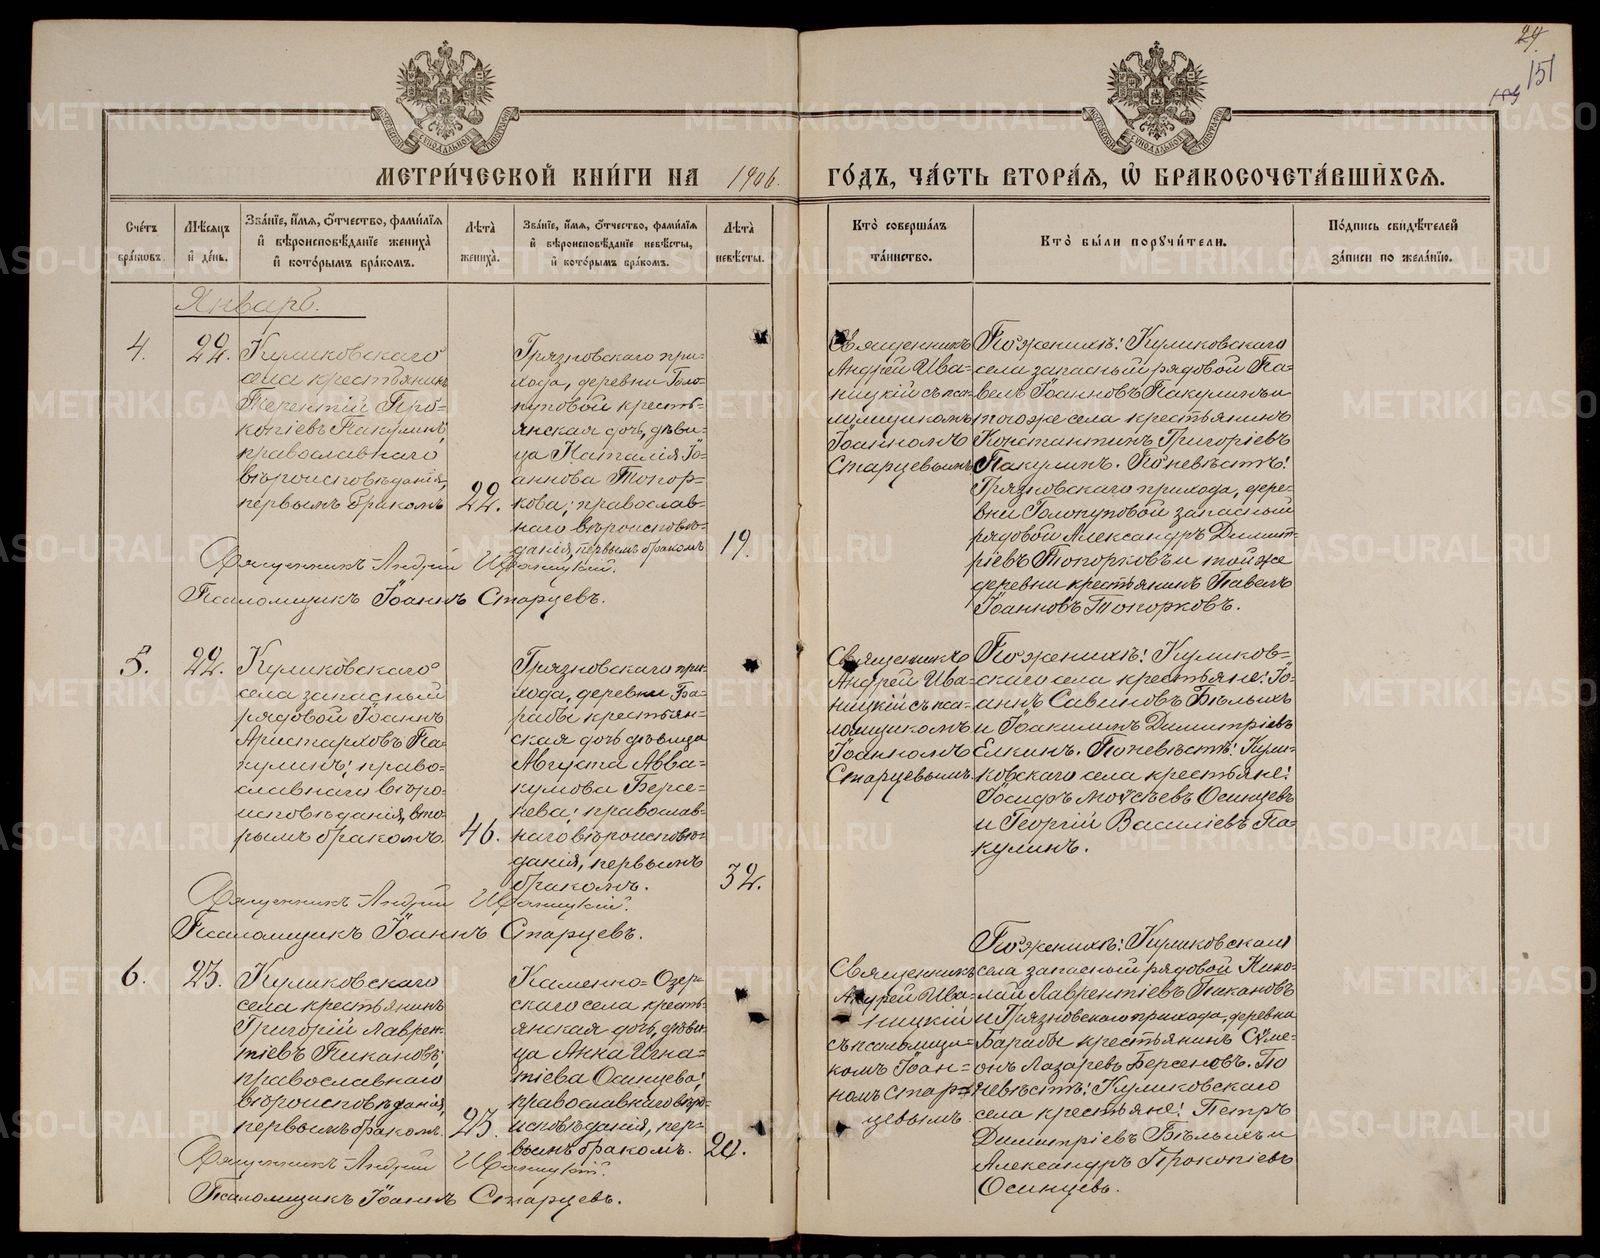 24.
151
МЕТРИ́ЧЕСКОЙ КНИ́ГИ НА 1906. ГО́ДЪ, ЧА́СТЬ ВТОРА́Я, Ѽ БРАКОСОЧЕТА́ВШИХСЯ.
Сче́тъ бра́ковъ.
Мѣ́сяцъ и́ де́нь.
Зва́нїе, и́мя, ѻ́тчество, фами́лїя и́ вѣроисповѣ́данїе жениха̀ и́ кото́рымъ бра́комъ.
Лѣ́та жениха̀.
Зва́нїе, и́мя, ѻ́тчество, фами́лїя и́ вѣроисповѣ́данїе невѣ́сты, и́ кото́рымъ бра́комъ.
Лѣ́та невѣ́сты.
Кто̀ соверша́лъ та́инство.
Кто̀ бы́ли порꙋчи́тели.
По́дпись свидѣ́телей за́писи по жела́нїю.
Январь.
4.
22.
Куликовскаго
села крестьянинъ
Терентій Про-
копіевъ Пакулинъ,
православнаго
вѣроисповѣданія,
первымъ бракомъ
22.
Грязновскаго при-
хода, деревни Голо-
пуповой кресть-
янская дочь, дѣви-
ца Наталія Іо-
аннова Топор-
кова; православ-
наго вѣроисповѣ-
данія, первымъ бракомъ
19.
Священникъ
Андрей Ива-
ницкій съ пса-
ломщикомъ
Іоанномъ
Старцевымъ
По женихѣ: Куликовскаго
села запасный рядовой Па-
велъ Іоанновъ Пакулинъ и
того же села крестьянинъ
Константинъ Григоріевъ
Пакулинъ. По невѣстѣ:
Грязновскаго прихода, дере-
вни Голопуповой запасный
рядовой Александръ Димит-
ріевъ Топорковъ и той же
деревни крестьянинъ Павелъ
Іоанновъ Топорковъ.
Священникъ Андрей Иваницкій.
Псаломщикъ Іоаннъ Старцевъ.
5.
22.
Куликовскаго
села запасный
рядовой Іоаннъ
Аристарховъ Па-
кулинъ; право-
славнаго вѣро-
исповѣданія, вто-
рымъ бракомъ.
46.
Грязновскаго при-
хода, деревни Ба-
рабы крестьян-
ская дочь дѣвица
Августа Авва-
кумова Берсе-
нева; православ-
наго вѣроисповѣ-
данія, первымъ
бракомъ.
32.
Священникъ
Андрей Ива-
ницкій съ пса-
ломщикомъ
Іоанномъ
Старцевымъ
По женихѣ: Куликов-
скаго села крестьяне: Іо-
аннъ Савиновъ Бѣлыхъ
и Іоакимъ Димитріевъ
Елкинъ. По невѣстѣ: Кули-
ковскаго села крестьяне:
Іосифъ Моѵсѣевъ Осинцевъ
и Георгій Василіевъ Па-
кулинъ.
Священникъ Андрей Иваницкій.
Псаломщикъ Іоаннъ Старцевъ.
6.
23.
Куликовскаго
села крестьянинъ
Григорій Лаврен-
тіевъ Пикановъ;
православнаго
вѣроисповѣданія,
первымъ бракомъ.
23.
Каменно-Озер-
скаго села кресть-
янская дочь, дѣви-
ца Анна Игна-
тіева Осинцева;
православнаго вѣро-
исповѣданія, пер-
вымъ бракомъ.
20.
Священникъ
Андрей Ива-
ницкій
съ псаломщи-
комъ Іоан-
номъ Стар-
цевымъ
По женихѣ: Куликовскаго
села запасный рядовой Нико-
лай Лаврентіевъ Пикановъ
и Грязновскаго прихода, деревни
Барабы крестьянинъ Сѵме-
онъ Лазаревъ Берсеновъ. По
невѣстѣ: Куликовскаго
села крестьяне: Петръ
Димитріевъ Бѣлыхъ и
Александръ Прокопіевъ
Осинцевъ.
Священникъ Андрей Иваницкій.
Псаломщикъ Іоаннъ Старцевъ.
METRIKI.GASO-URAL.RU